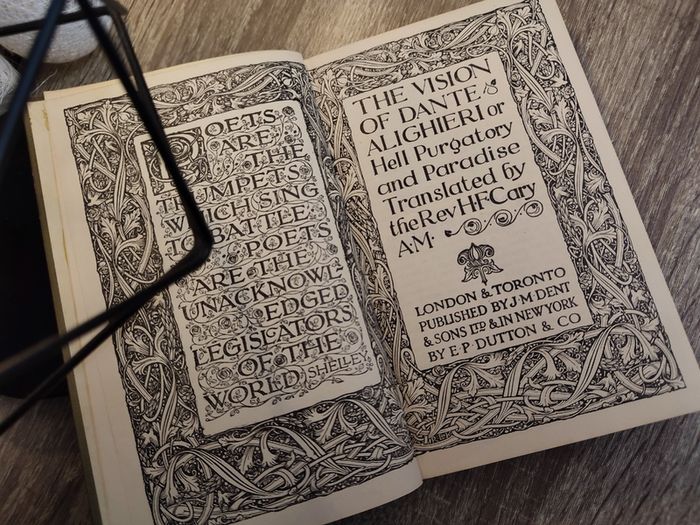 POETS
ARE
THE
TRUMPETS
WHICH SING
TO BATTLE
POETS
ARE THE
UNACKNOWL-
EDGED
LEGISLATORS
OF THE
WORLD SHELLEY
THE VISION
OF DANTE
ALIGHIERI or
Hell Purgatory
and Paradise
Translated by
the Rev H.F. Cary
A.M.
LONDON & TORONTO
PUBLISHED BY J·M·DENT
& SONS LTD & IN NEW YORK
BY E·P·DUTTON & CO